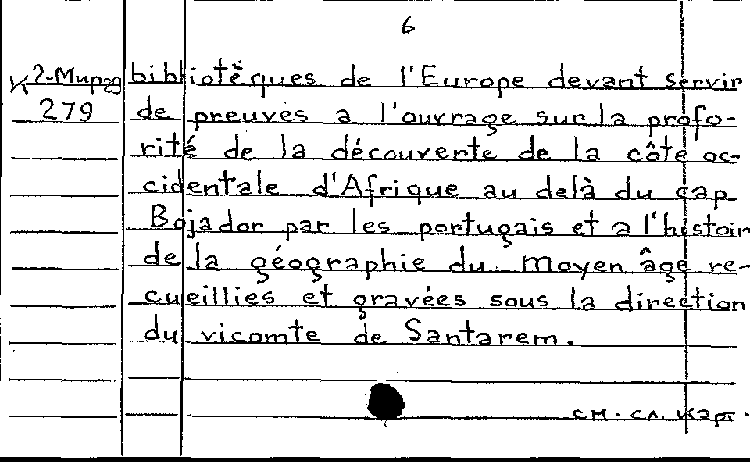 6
К 2-Мираз bibliotĕques de l'Europe devant servir
279 de preuves a l'ouvrage sur la profo-
rité de la découverte de la côte oc-
cidentale d'Afrique au delà du cap
Bojador par les portugais et a l'histoir
de la géographie du moyen âge re-
cueillies et gravées sous la direction
du vicomte de Santarem.
см. сл. карт.